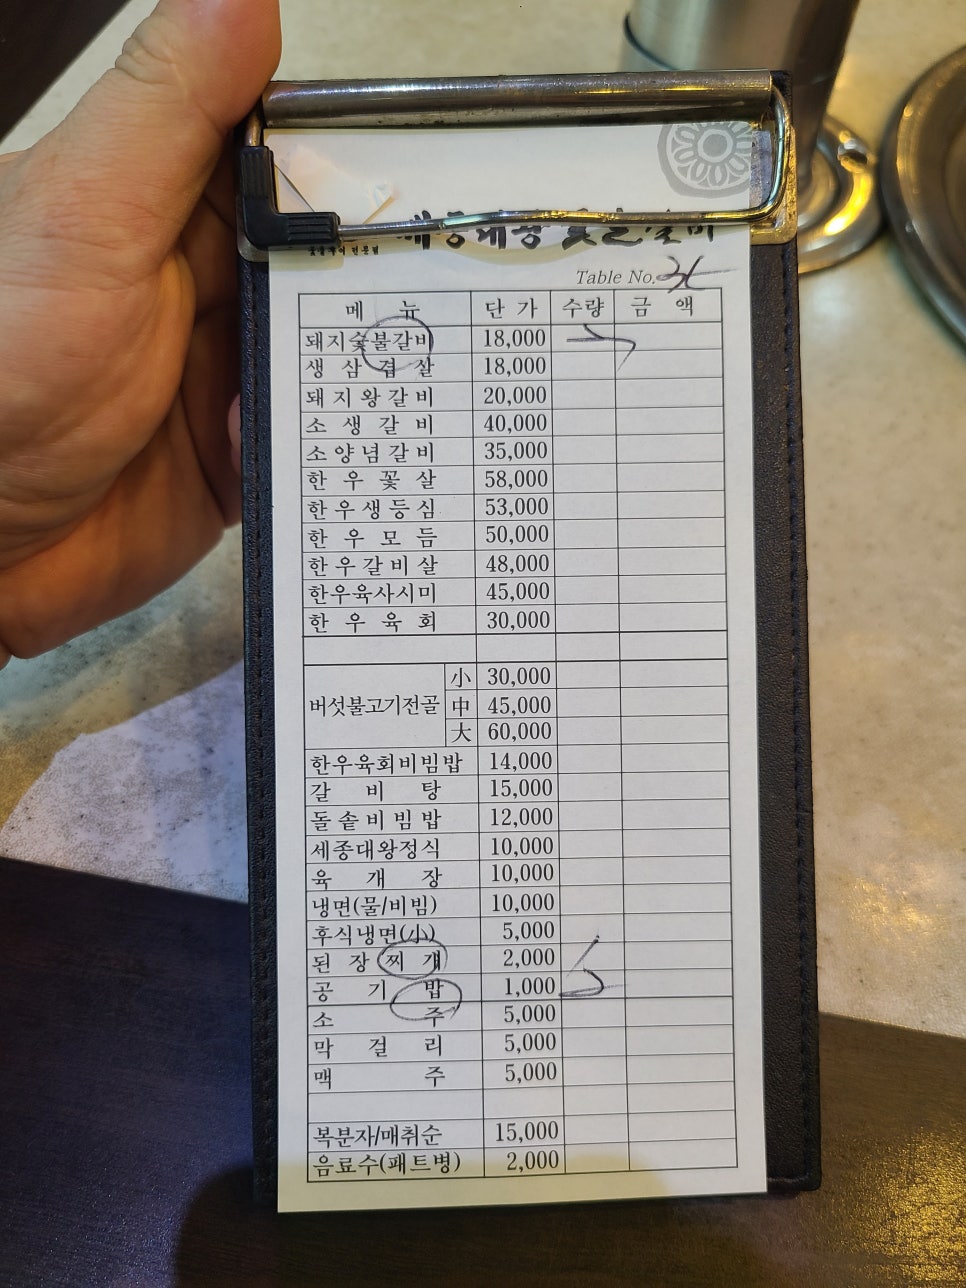 세종대왕 숯불갈비
Table No.
메 뉴 단 가 수량 금 액
돼지숯불갈비 18,000
생 삼 겹 살 18,000
돼 지 왕 갈 비 20,000
소 생 갈 비 40,000
소 양 념 갈 비 35,000
한 우 꽃 살 58,000
한 우 생 등 심 53,000
한 우 모 듬 50,000
한 우 갈 비 살 48,000
한우육사시미 45,000
한 우 육 회 30,000
버섯불고기전골 小 30,000
中 45,000
大 60,000
한우육회비빔밥 14,000
갈 비 탕 15,000
돌 솥 비 빔 밥 12,000
세종대왕정식 10,000
육 개 장 10,000
냉면(물/비빔) 10,000
후식냉면(小) 5,000
된 장 찌 개 2,000
공 기 밥 1,000
소 주 5,000
막 걸 리 5,000
맥 주 5,000
복분자/매취순 15,000
음료수(패트병) 2,000